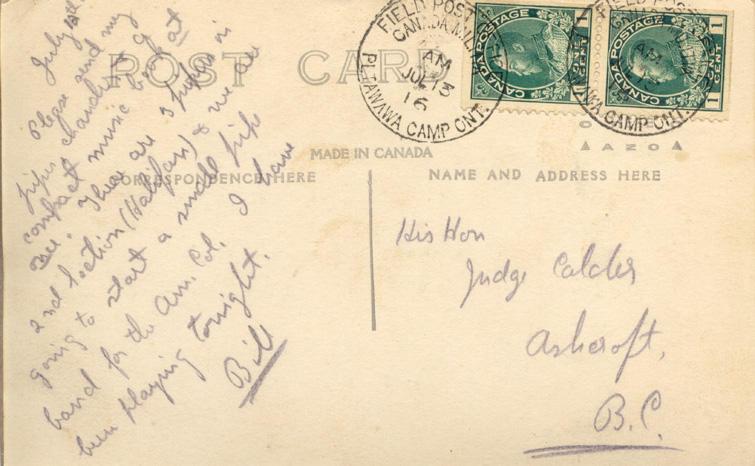 July 12
Please send my
pipes chanter &
compact music book at
once. There are 3 pipers in
2nd Section (Halifax) & we are
going to start a small pipe
band for the Am. Col. I have
been playing tonight.
Bill
POST CARD
MADE IN CANADA
CORRESPONDENCE HERE
NAME AND ADDRESS HERE
FIELD POST
CANADA MILITIA
AM
JUL 13
16
PETAWAWA CAMP ONT.
CANADA POSTAGE
1 CENT
CANADA POSTAGE
1 CENT
FIELD POST
AM
WA CAMP ONT.
AZO
His Hon
Judge Calder
Ashcroft,
B.C.